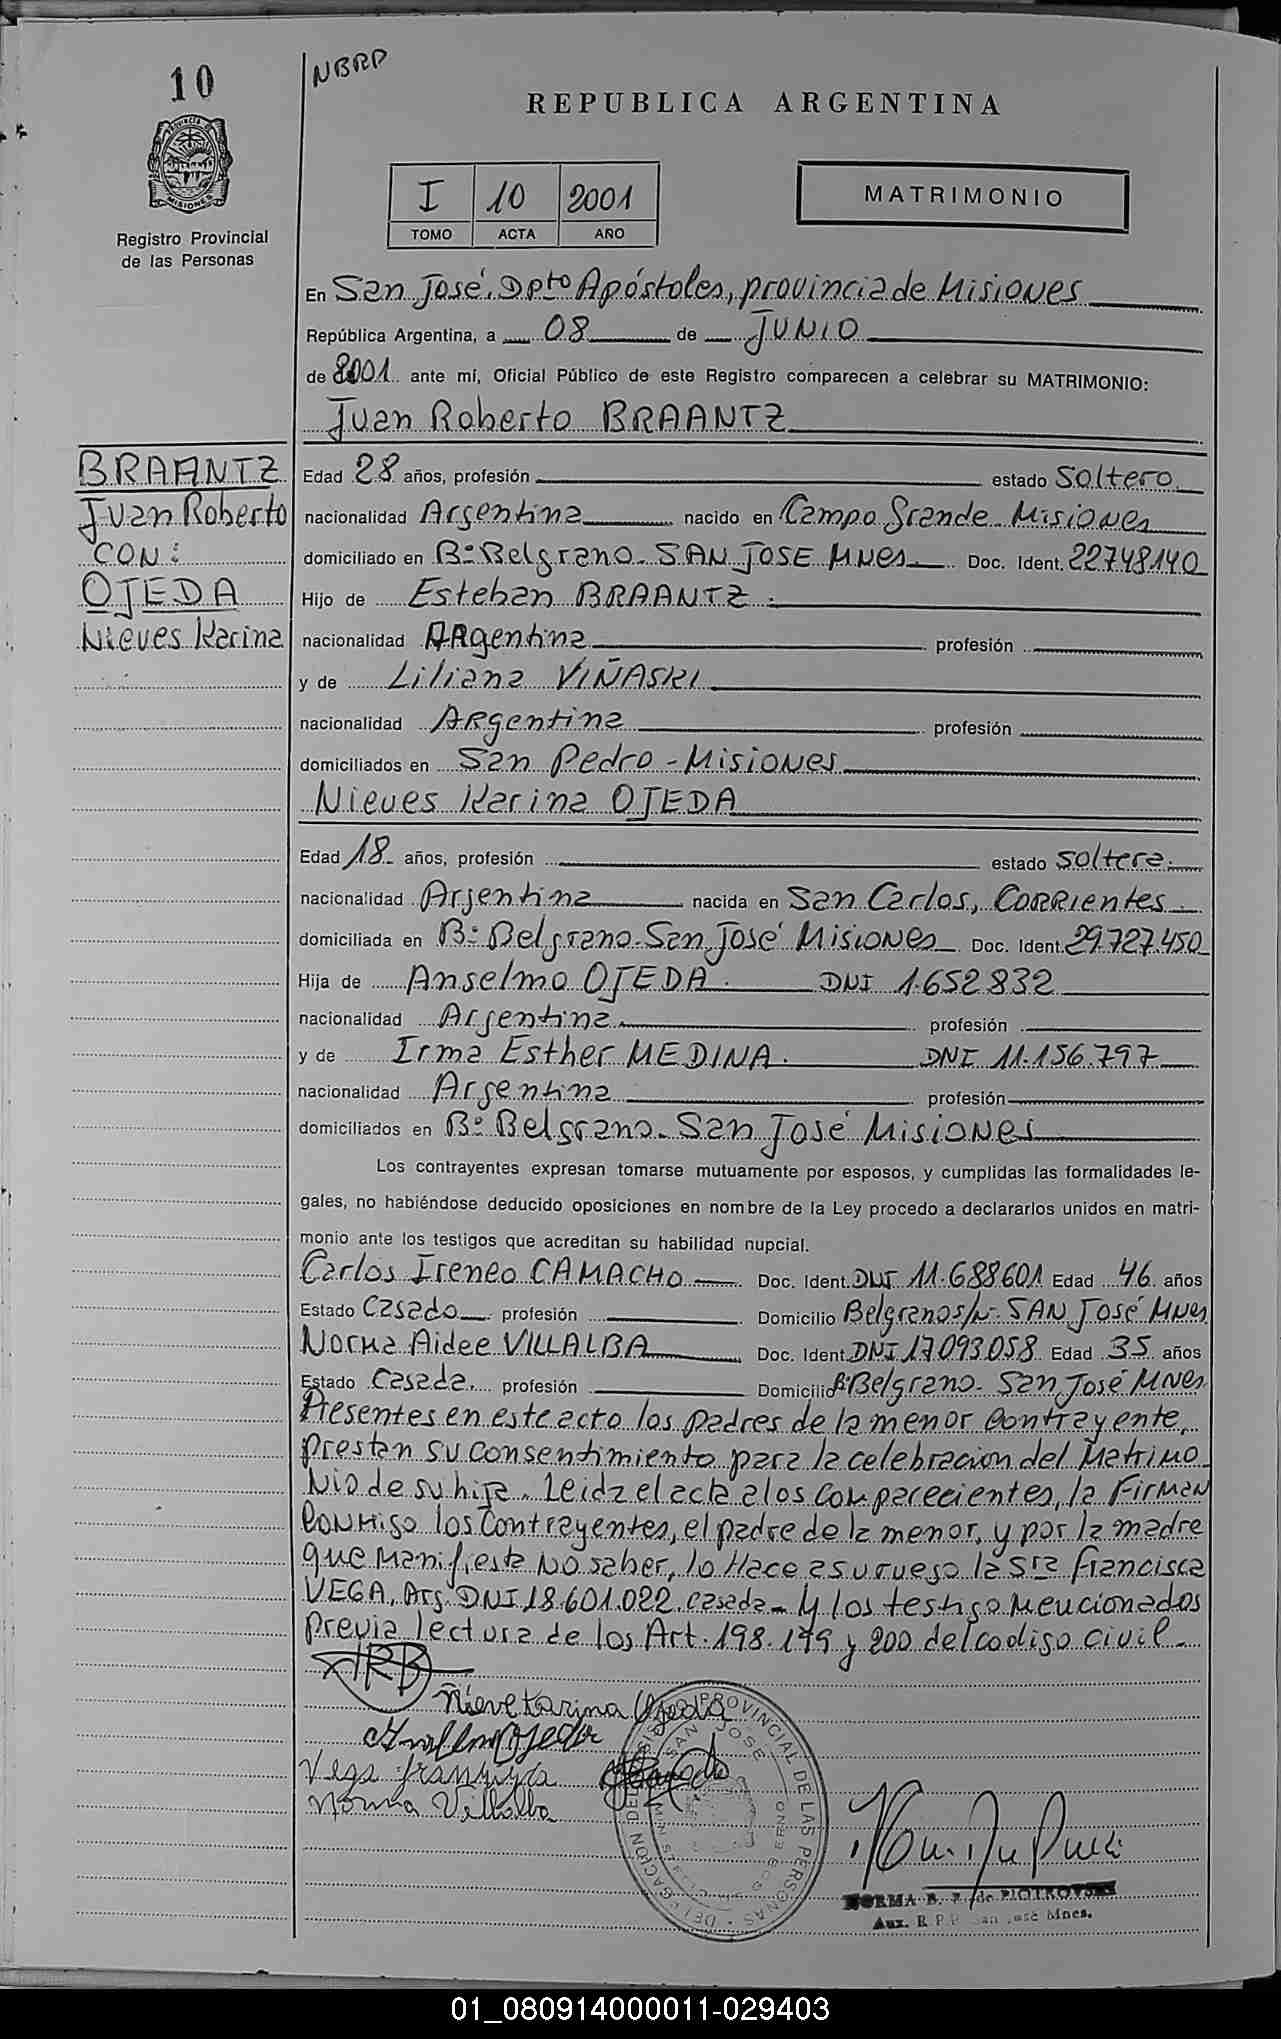 10
NBRP
REPUBLICA ARGENTINA
PROVINCIA DE
MISIONES
Registro Provincial
de las Personas
I 10 2001
TOMO ACTA AÑO
MATRIMONIO
En San José, Dpto Apóstoles, provincia de Misiones
República Argentina, a 08 de JUNIO
de 2001 ante mí, Oficial Público de este Registro comparecen a celebrar su MATRIMONIO:
Juan Roberto BRAANTZ
BRAANTZ
Juan Roberto
CON:
OJEDA
Nieves Karina
Edad 28 años, profesión estado Soltero
nacionalidad Argentina nacido en Campo Grande - Misiones
domiciliado en Bº Belgrano - SAN JOSE MNes Doc. Ident. 22748140
Hijo de Esteban BRAANTZ.
nacionalidad ARgentina profesión
y de Liliana VIÑASKI
nacionalidad ARgentina profesión
domiciliados en San Pedro - Misiones
Nieves Karina OJEDA
Edad 18 años, profesión estado soltera.
nacionalidad Argentina nacida en San Carlos, CORRientes.
domiciliada en Bº Belgrano - San José Misiones Doc. Ident. 29.727.450
Hija de Anselmo OJEDA. DNI 1.652832
nacionalidad Argentina profesión
y de Irma Esther MEDINA. DNI 11.156.797
nacionalidad Argentina profesión
domiciliados en Bº Belgrano - San José Misiones
Los contrayentes expresan tomarse mutuamente por esposos, y cumplidas las formalidades le-
gales, no habiéndose deducido oposiciones en nombre de la Ley procedo a declararlos unidos en matri-
monio ante los testigos que acreditan su habilidad nupcial.
Carlos Ireneo CAMACHO Doc. Ident. DNI 11.688601 Edad 46 años
Estado Casado profesión Domicilio Belgrano s/Nº SAN JOSÉ MNes
Norma Aidee VILLALBA Doc. Ident. DNI 17093058 Edad 35 años
Estado Casada. profesión Domicilio Bº Belgrano - San José MNes
Presentes en este acto los padres de la menor contrayente,
prestan su consentimiento para la celebracion del Matrimo
nio de su hija. Leida el acta a los comparecientes, la Firman
conmigo los contrayentes, el padre de la menor, y por la madre
que manifiesta no saber, lo Hace a su ruego la Sra Francisca
VEGA, Arg. DNI 18.601.022. casada - y los testigo mencionados
previa lectura de los Art. 198. 199 y 200 del codigo civil.
JRB
Nieve Karina Ojeda
Anselmo Ojeda
Vega Francisca
Norma Villalba
PROVINCIAL DE LAS PERSONAS
SAN JOSE
NORMA B. R. de PIOTROVSKI
Aux. R.P.P. San José Mnes.
01_080914000011-029403